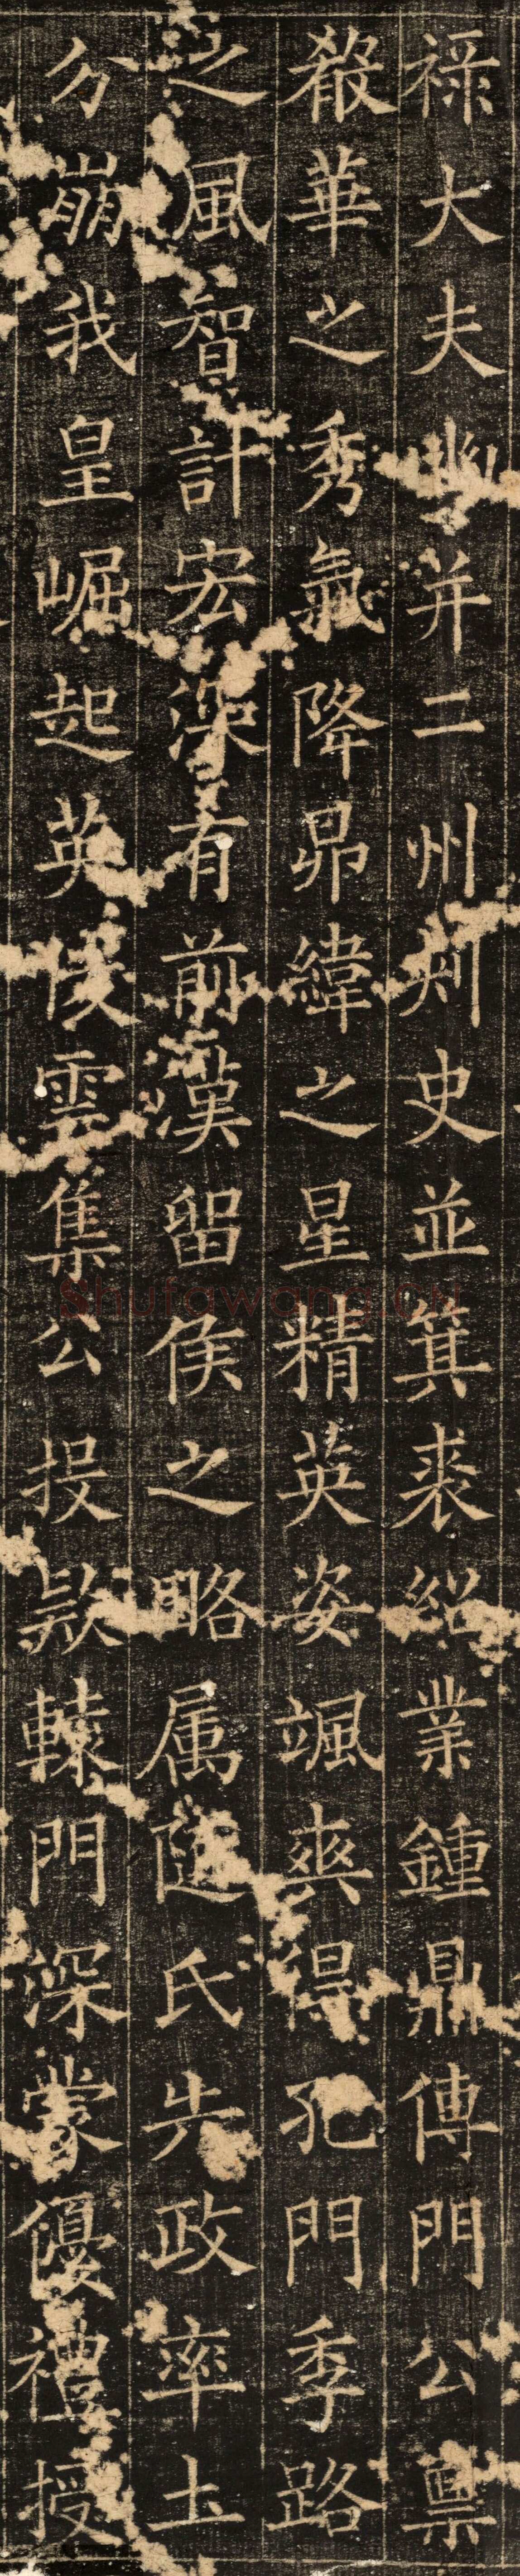 禄大夫幽并二州刾史並箕裘紹業鍾鼎傳門公禀
嶽華之秀氣降昴緯之星精英姿颯爽得孔門季路
之風智計宏深有前漢留侯之略属隨氏失政率土
分崩我皇崛起英俊雲集公投款轅門深蒙優禮授
Shufawang.cn